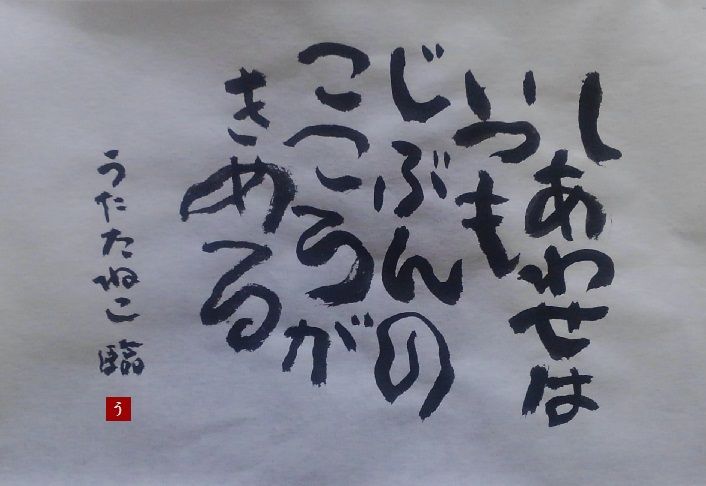 しあわせは
いつも
じぶんの
こころが
きめる
うたたねこ 臨
う